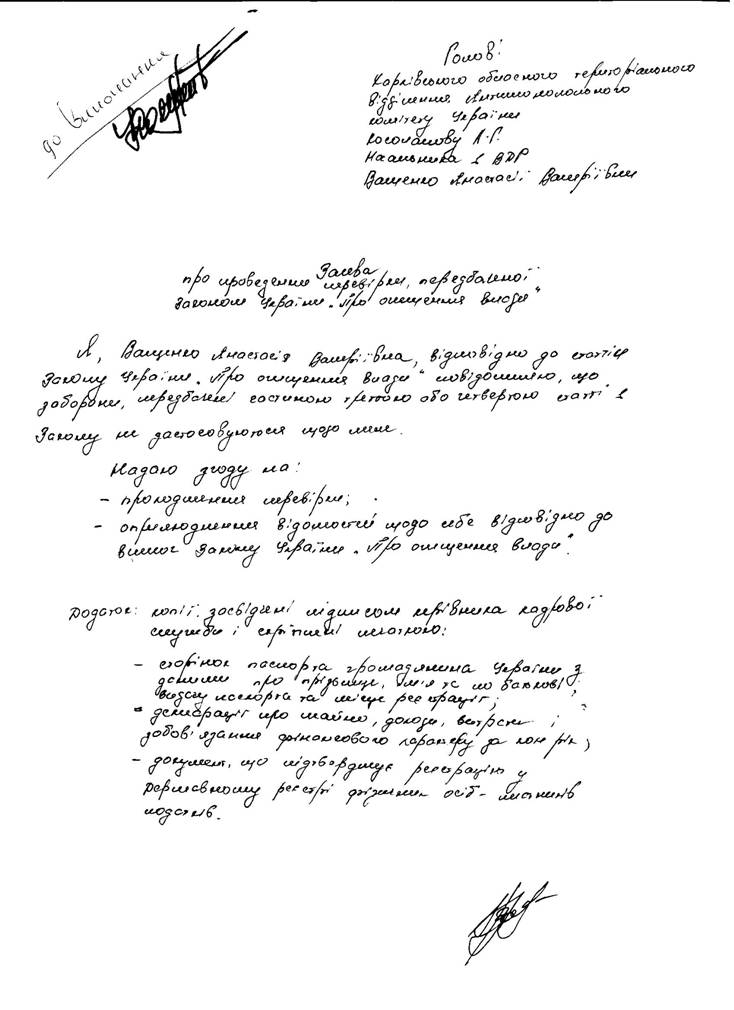 до виконання
Голові
Харківського обласного територіального
відділення Антимонопольного
комітету України
А.Г.
Начальника 1 ВДР
Ващенко Анастасії Валеріївни
Заява
про проведення перевірки, передбаченої
Законом України „Про очищення влади"
Я, Ващенко Анастасія Валеріївна, відповідно до статті
Закону України „Про очищення влади" повідомляю, що
заборони, передбачені частиною третьою або четвертою статті 1
Закону не застосовуються щодо мене.
Надаю згоду на:
- проходження перевірки;
- оприлюднення відомостей щодо себе відповідно до
вимог Закону України „Про очищення влади".
Додаток: копії засвідчені підписом керівника кадрової
служби і скріплені печаткою:
- сторінок паспорта громадянина України з
даними про прізвище, ім'я та по батькові,
видачу паспорта та місце реєстрації;
- декларації про майно, доходи, витрати і
зобов'язання фінансового характеру за рік;
- документ, що підтверджує реєстрацію у
Державному реєстрі фізичних осіб - платників
податків.